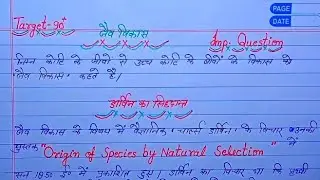 PAGE
DATE
Target-90+
जैव विकास
Imp. Question
निम्न कोटि के जीवों से उच्च कोटि के जीवों के विकास को
जैव विकास कहते हैं।
डार्विन का सिद्धान्त
जैव विकास के विषय में वैज्ञानिक "चार्ल्स डार्विन" के विचार उनकी
पुस्तक "Origin of Species by Natural Selection" में
सन में प्रकाशित हुए। डार्विन का विचार था कि पृथ्वी